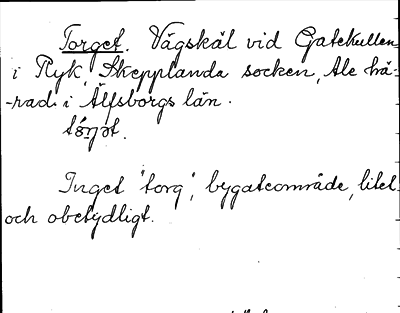 Torget. Vägskäl vid Gatekullen
i Ryk, Skepplanda socken, Ale hä-
-rad i Älfsborgs län.
Inget 'torg', bygateområde, litet
och obetydligt.